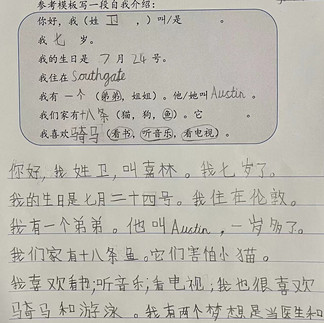 参考模板写一段自我介绍：
你好，我（姓 卫 ，）叫/是 。
我 七 岁。
我的生日是 7 月 24 号。
我住在 Southgate
我有 一个（弟弟，姐姐）。他/她叫 Austin 。
我们家有十八条（猫，狗，鱼）。它 。
我喜欢骑马（看书，听音乐，看电视）。
你好，我姓卫，叫喜林。我七岁了。
我的生日是七月二十四号。我住在伦敦。
我有一个弟弟。他叫Austin，一岁多了。
我们家有十八条鱼。它们害怕小猫。
我喜欢看书；听音乐；看电视，我也很喜欢
骑马和游泳。我有两个梦想是当医生和